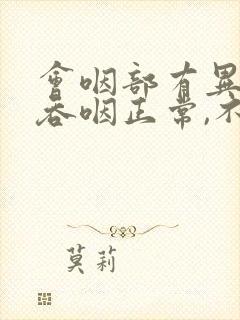 會咽部有異
吞咽正常,不
莫莉